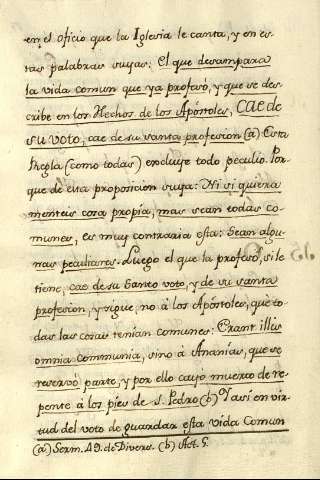 en el oficio que la Iglesia le canta, y en es-
tas palabras suyas: El que desampara
la vida comun que ya profesó, y que se des-
cribe en los Hechos de los Apóstoles, CAE de
su voto, cae de su santa profesion (a) Esta
Regla (como todas) encluye todo peculio. Por
que de esta proposicion suya: Ni si quiera
menteis cosa propia, mas sean todas co-
munes, es muy contraria esta: Sean algu-
nas peculiares. Luego el que la profesó, si lo
tiene, cae de su Santo voto, y de su santa
profesion, y sigue, no à los Apóstoles, que to-
das las cosas tenian comunes: Erant illis
omnia communia, sino à Ananías, que se
reservó parte, y por ello cayó muerto de re-
pente à los pies de S. Pedro (b) Y asi en vir-
tud del voto de guardar esta vida Comun
(a) Serm. 49. de Divers. (b) Act. 5.